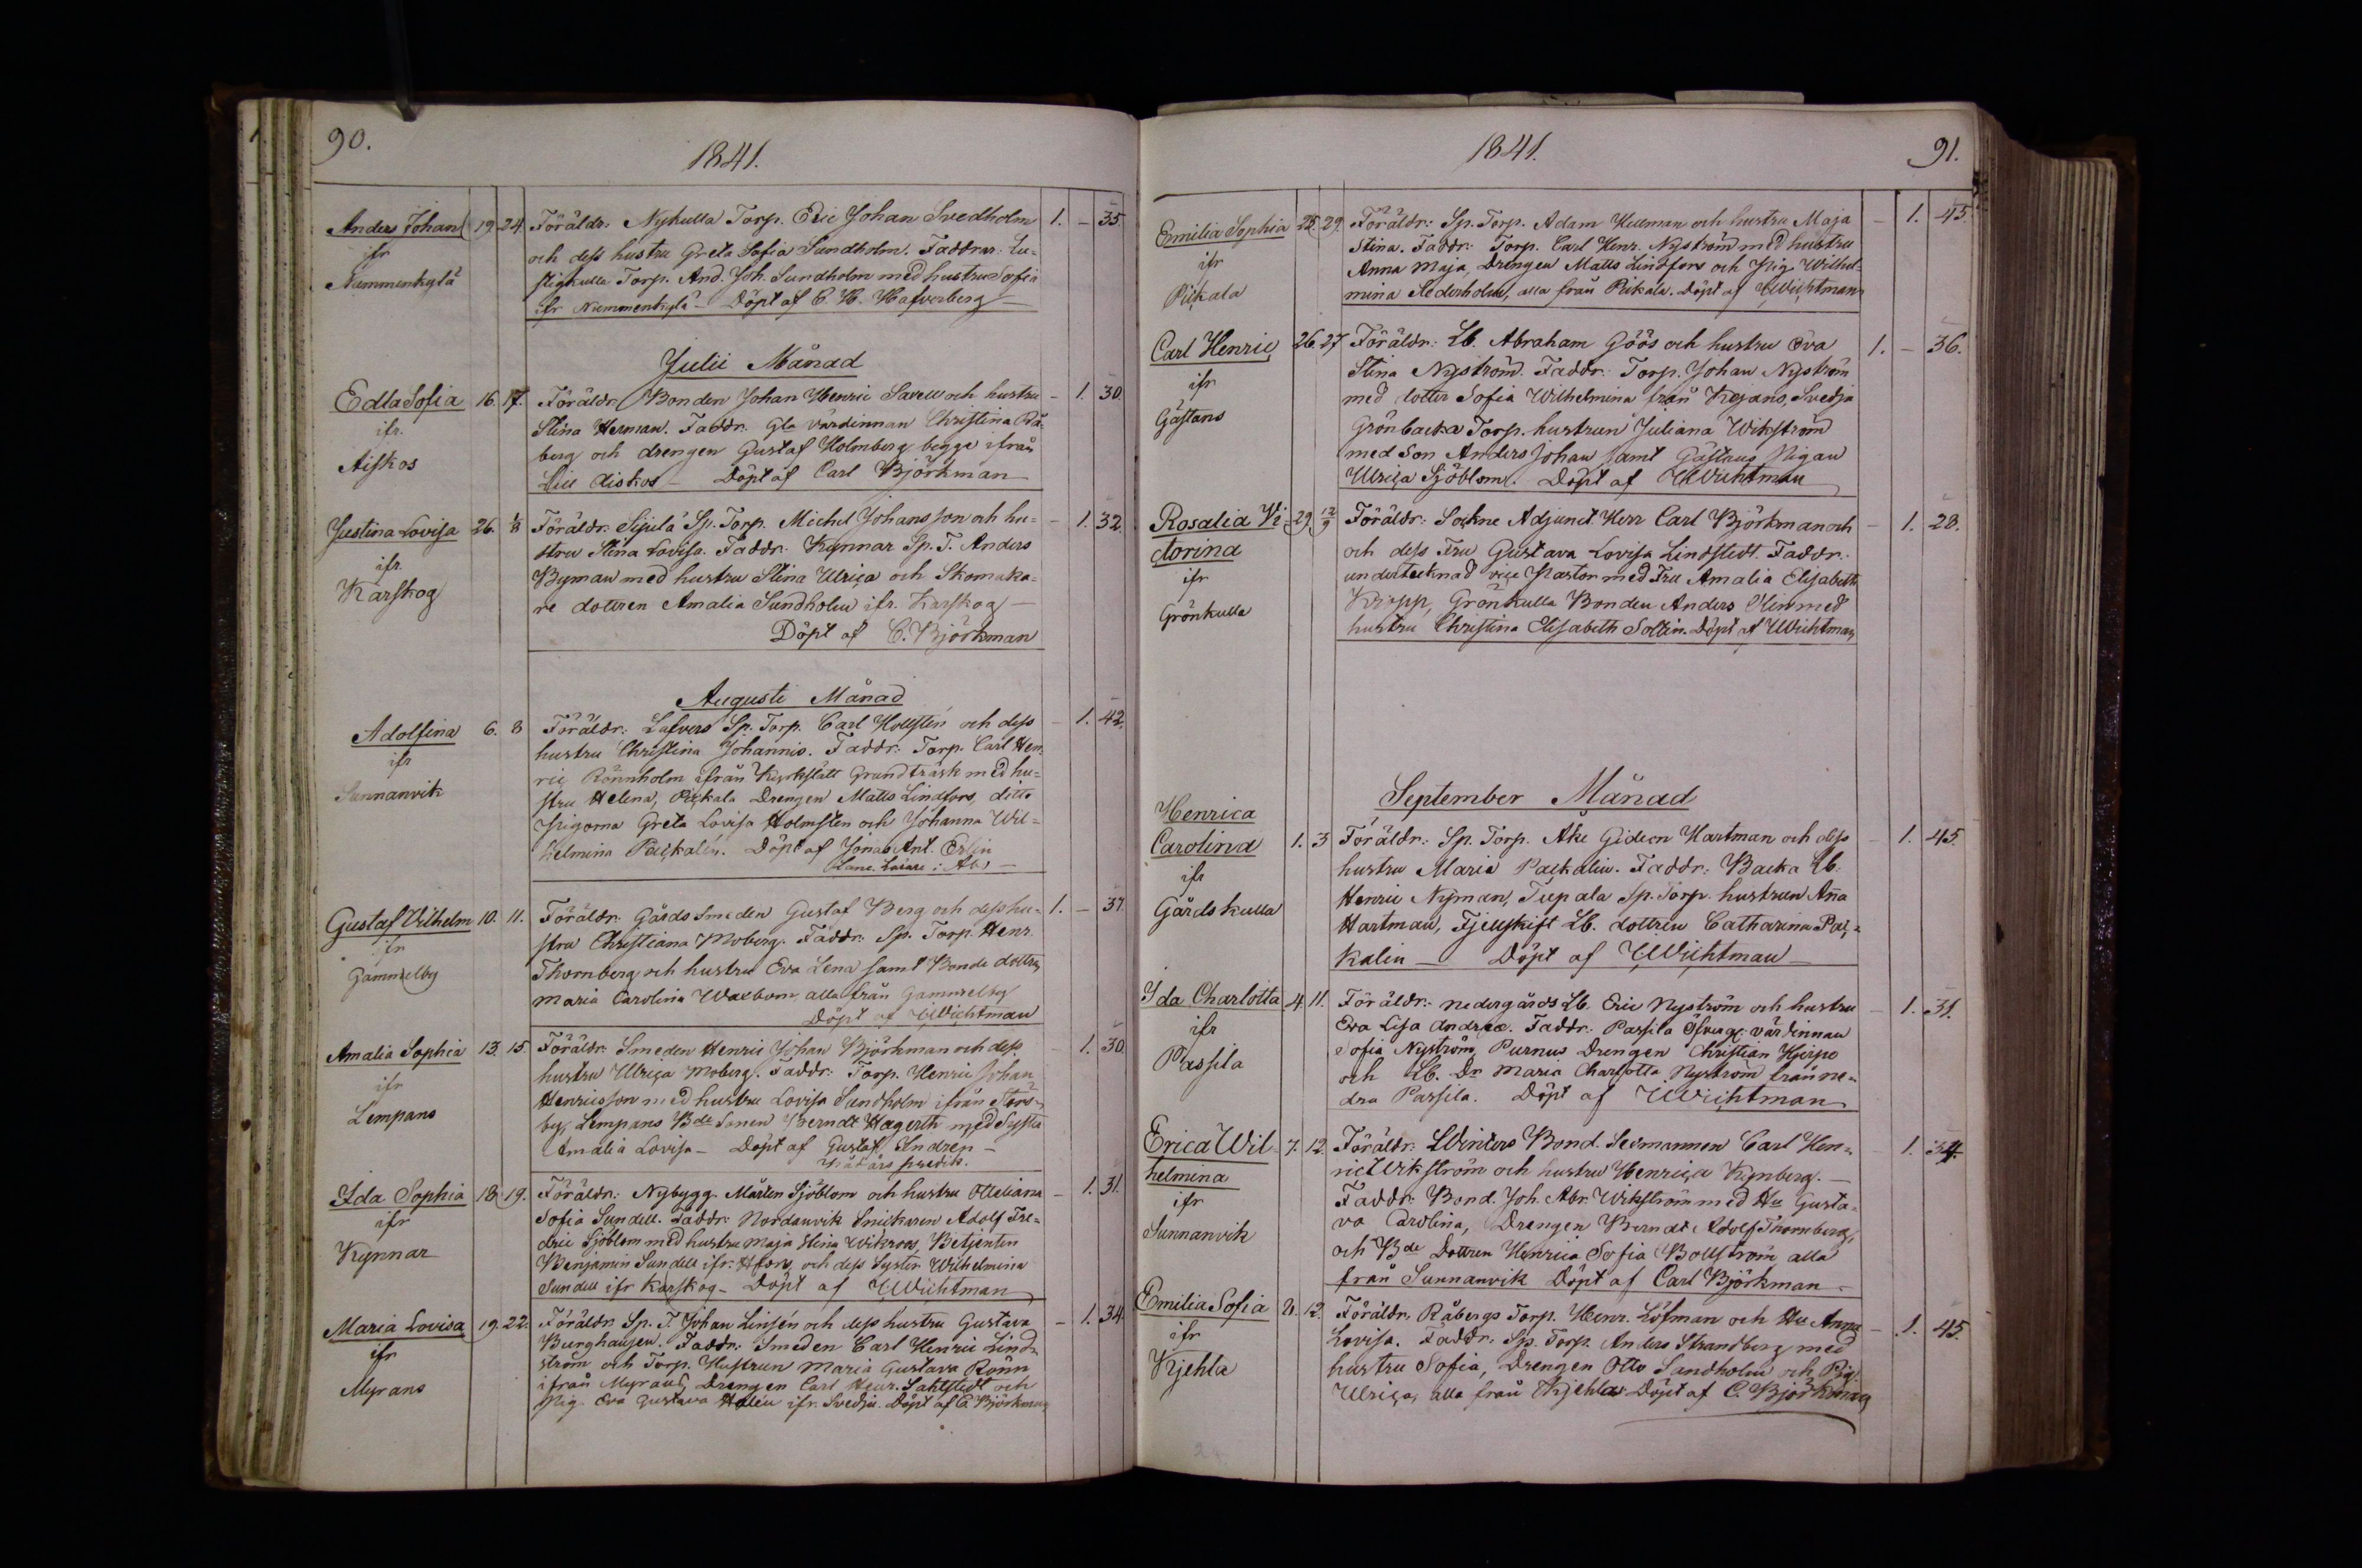 90.
1841.
Anders Johan 19. 24. Föräldr. Nykulla Torp. Eric Johan Svedholm 1. – 35.
ifr och dess hustru Greta Sofia Sundholm. Faddrar: Lu-
Nummenkylä stigkulla Torp. And. Joh. Sundholm med hustru Sofia
ifr Nummenkylä – Döpt af C. H. Hafverberg –
Julii Månad
Edla Sofia 16. 17. Föräldr. Bonden Johan Henric Savell och hustru – 1. 30.
ifr. Stina Herman. Faddr. Gla värdinnan Christina Rå-
Aiskos berg och drengen Gustaf Holmberg begge ifrån
Lill Aiskos – Döpt af Carl Björkman
Justina Lovisa 26. 1/8 Föräldr: Sipulä Sp. Torp. Michel Johansson och hu- – 1. 32.
ifr stru Stina Lovisa. Faddr. Kynnar Sp. T. Anders
Karskog Byman med hustru Stina Ulrica och Skomaka-
re dottren Amalia Sundholm ifr. Karskog –
Döpt af C. Björkman
Augusti Månad
Adolfina 6. 8 Föräldr: Lafvers Sp. Torp. Carl Hollsten och dess – 1. 42.
ifr hustru Christina Johannis. Faddr: Torp. Carl Hen-
Sunnanvik ric Rönnholm ifrån Kyrkslätt Grundträsk med hu-
stru Helena, Pickala Drengen Matts Lindfors, ditto
Pigorna Greta Lovisa Holmsten och Johanna Wil-
helmina Packalén. Döpt af Jonas Ant. Erlin
Lanc. Lärare i Åbo –
Gustaf Vilhelm 10. 11. Föräldr: Gårds Smeden Gustaf Berg och dess hu- 1. – 37.
ifr stru Christiana Moberg. Faddr: Sp. Torp. Henr.
Gammelby Thornberg och hustru Eva Lena samt Bonde dottren
Maria Carolina Waxbom, alla från Gammelby
Döpt af UWichtman
Amalia Sophia 13. 15. Föräldr: Smeden Henric Johan Björkman och dess – 1. 30.
ifr hustru Ulrica Moberg. Faddr: Torp. Henric Johan
Lempans Henricsson med hustru Lovisa Sundholm ifrån Stors-
by, Lempans Bde Sonen Berndt Hagerth med Syster
Amalia Lovisa – Döpt af Gustaf Indren –
Nådårs predik.
Ida Sophia 18. 19. Föräldr: Nybygg. Mårten Sjöblom och hustru Otteliana – 1. 31.
ifr Sofia Sundell. Faddr: Nordanvik Snickaren Adolf Fre-
Kynnar dric Sjöblom med hustru Maja Stina Wikroos, Betjenten
Benjamin Sundell ifr. Hfors, och dess Syster Wilhelmina
Sundell ifr Karskog – Döpt af UWichtman
Maria Lovisa 19. 22. Föräldr. Sp. T. Johan Linsén och dess hustru Gustava – 1. 34.
ifr Burghausen. Faddr: Smeden Carl Henric Lind-
Myrans ström och Torp. Hustrun Maria Gustava Rönn
ifrån Myrans, Drengen Carl Henr. Sahlstedt och
Pig. Eva Gustava Holén ifr. Svedja. Döpt af C. Björkman
1841.
91.
Emilia Sophia 25. 29. Föräldr: Sp. Torp. Adam Kullman och hustru Maja – 1. 45
ifr Stina. Faddr: Torp. Carl Henr. Nyström med hustru
Pickala Anna Maja, Drengen Matts Lindfors och Pig. Wilhel-
mina Sederholm, alla från Pikala. Döpt af UWichtman
Carl Henric 26. 27 Föräldr: Lb. Abraham Göös och hustru Eva 1. – 36.
ifr Stina Nyström. Faddr: Torp. Johan Nyström
Gästans med dotter Sofia Wilhelmina från Kojans, Svedja
Grönbacka Torp. hustrun Juliana Wikström
med Son Anders Johan samt Gästans Pigan
Ulrica Sjöblom. Döpt af UWichtman
Rosalia Vi- 29. 12/9 Föräldr: Sockne Adjunct Herr Carl Björkman och – 1. 28.
ctorina och dess Fru Gustava Lovisa Lindstedt. Faddr.
ifr undertecknad vice Pastor med Fru Amalia Elisabeth
Grönkulla Kropp, Grönkulla Bonden Anders Klin med
hustru Christina Elisabeth Soltin. Döpt af UWichtman
September Månad
Henrica
Carolina 1. 3 Föräldr: Sp. Torp. Ake Gideon Hartman och dess – 1. 45.
ifr hustru Maria Packalin. Faddr: Backa Lb.
Gårdskulla Henric Nyman, Tupala Sp. Torp. hustrun Aña
Hartman, Fjellskift Lb. dottren Catharina Pac-
kalin – Döpt af UWichtman –
Ida Charlotta 4. 11. Föräldr: Nedergårds Lb. Eric Nyström och hustru – 1. 31.
ifr Eva Lisa Andreæ. Faddr: Passila Öfverg. värdinnan
Passila Sofia Nyström, Purnus Drengen Christian Hjerpe
och Lb. Dr Maria Charlotta Nyström från ne-
dra Passila. Döpt af UWichtman
Erica Wil- 7. 12. Föräldr: Winters Bond. Sexmannen Carl Hen- – 1. 34.
helmina ric Wikström och hustru Henrica Kynberg. –
ifr Faddr: Bond. Joh. Abr. Wikström med Hu Gusta-
Sunnanvik va Carolina, Drengen Berndt Adolf Thornberg,
och Bde Dottren Henrica Sofia Bollström alla
från Sunnanvik Döpt af Carl Björkman –
Emilia Sofia 8. 12. Föräldr. Råbergs Torp. Henr. Löfman och Hu Anna – 1. 45.
ifr Lovisa. Faddr: Sp. Torp. Anders Strandberg med
Kjehla hustru Sofia, Drengen Otto Sandholm och Pig.
Ulrica, alla från Kjehla. Döpt af C. Björkman